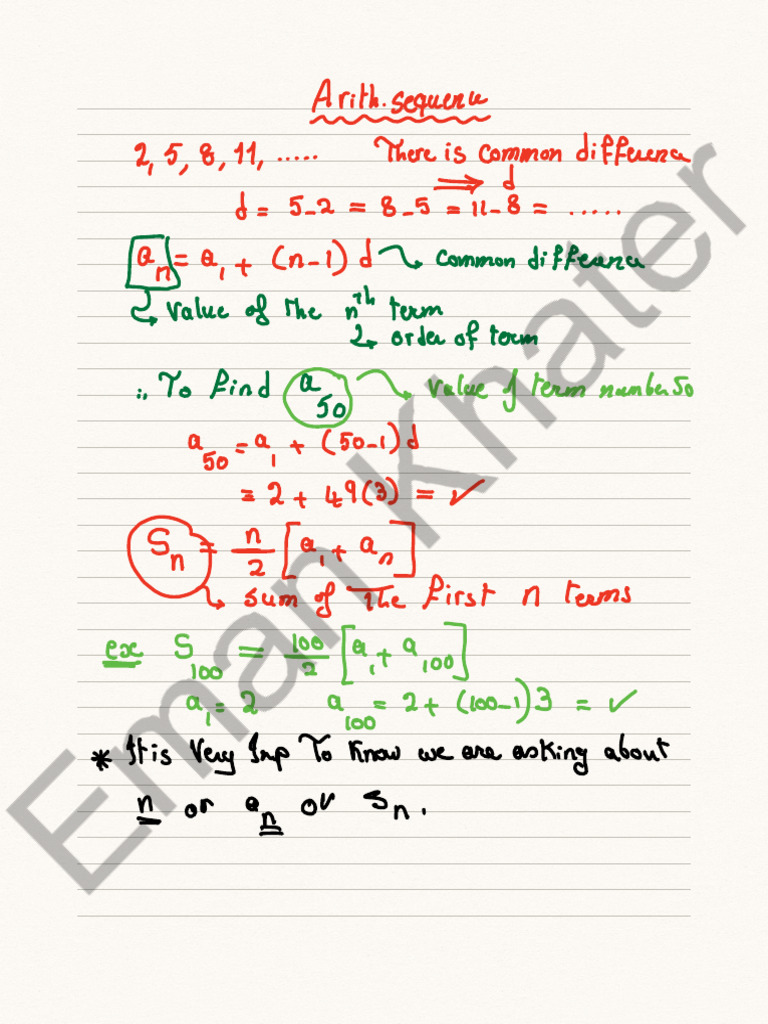 Arith. sequence
2, 5, 8, 11, ..... There is common difference
⇒ d
d = 5-2 = 8-5 = 11-8 = .....
aₙ = a₁ + (n-1) d ↪ common difference
↪ value of the nᵗʰ term
↪ order of term
∴ To find a₅₀ ↪ value of term number 50
a₅₀ = a₁ + (50-1) d
= 2 + 49(3) = ✓
Sₙ = n/2 [a₁ + aₙ]
↪ sum of The first n terms
ex S₁₀₀ = 100/2 [a₁ + a₁₀₀]
a₁ = 2 a₁₀₀ = 2 + (100-1)3 = ✓
* It is Very Imp To Know we are asking about
n or aₙ or Sₙ.
Eman Khater